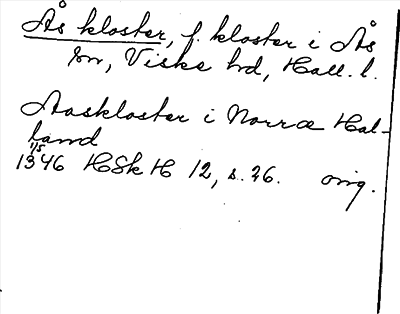 Ås kloster, f. kloster i Ås
sn, Viske hd, Hall. l.
Aaskloster i Norræ Hal-
land
1/5
1346 HSkH 12, s. 26. orig.